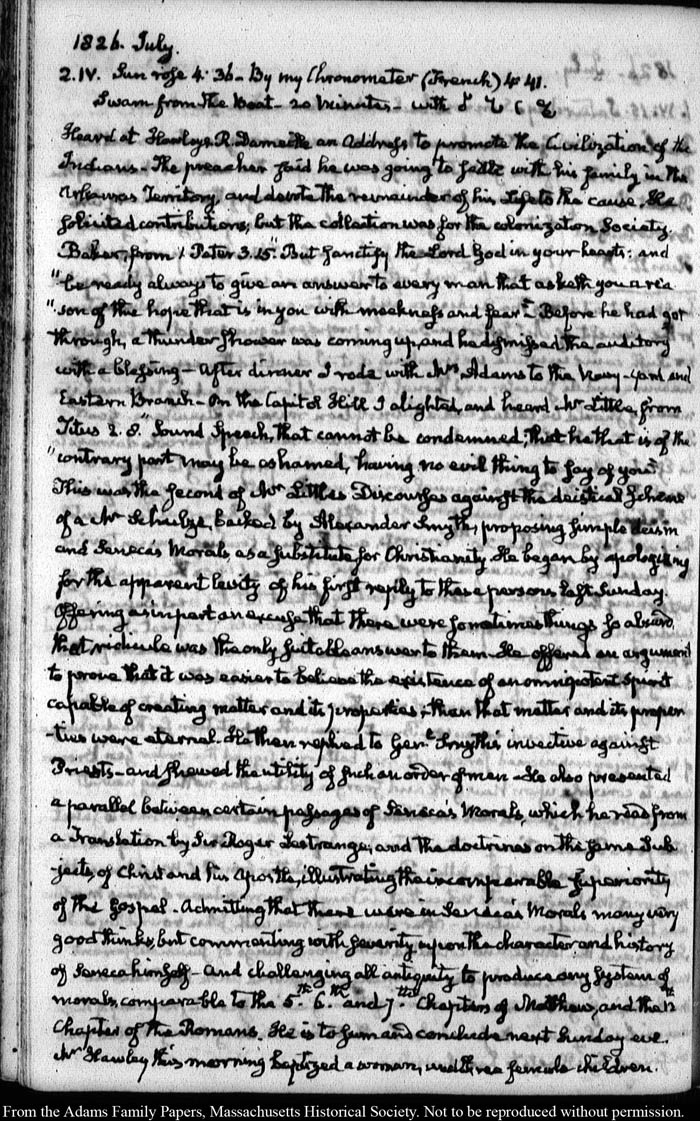 1826. July.
2. IV. Sun rose 4:36 - By my Chronometer (French) 4. 41.
Swam from the Boat - 20 minutes - with
Heard at Hawley's R. an Address to promote the Civilization of the
Indians. The preacher said he was going to settle with his family in the
Arkansas Territory, and devote the remainder of his Life to the cause. He
solicited contributions, but the collection was for the colonization Society.
Baker, from 1 Peter 3.15. "But sanctify the Lord God in your hearts: and
"be ready always to give an answer to every man that asketh you a rea
"son of the hope that is in you with meekness and fear" Before he had got
through, a thunder shower was coming up, and he dismissed the auditory
with a blessing - After dinner I rode with Mrs Adams to the Navy-yard and
Eastern Branch - On the Capitol Hill I alighted, and heard Mr Little, from
Titus 2. 8. "Sound Speech, that cannot be condemned; that he that is of the
"contrary part may be ashamed, having no evil thing to say of you."
This was the second of Mr Little's Discourses against the deistical scheme
of a Mr backed by Alexander Smyth, proposing simple deism
and Seneca's Morals as a substitute for Christianity. He began by apologizing
for the apparent levity of his first reply to these persons last Sunday.
Offering as in part an excuse that there were sometimes things so absurd,
that ridicule was the only suitable answer to them. He offered an argument
to prove that it was easier to believe the existence of an omnipotent Spirit
capable of creating matter and its properties, than that matter and its proper
-ties were eternal. He then replied to Genl. Smyth's invective against
Priests - and shewed the utility of such an order of men - He also presented
a parallel between certain passages of Seneca's Morals, which he read from
a Translation by Sir Roger Lestrange, and the doctrines on the same Sub
-jects, of Christ and his Apostles, illustrating the incomparable superiority
of the Gospel. Admitting that there were in Seneca's Morals many very
good things, but commenting with severity upon the character and history
of Seneca himself - And challenging all antiquity to produce any System of
morals, comparable to the 5th. 6th. and 7th. Chapters of Matthew, and the 12th
Chapter of the Romans. He is to sum and conclude next Sunday eve.
Mr Hawley this morning baptized a woman, and three female children.
From the Adams Family Papers, Massachusetts Historical Society. Not to be reproduced without permission.